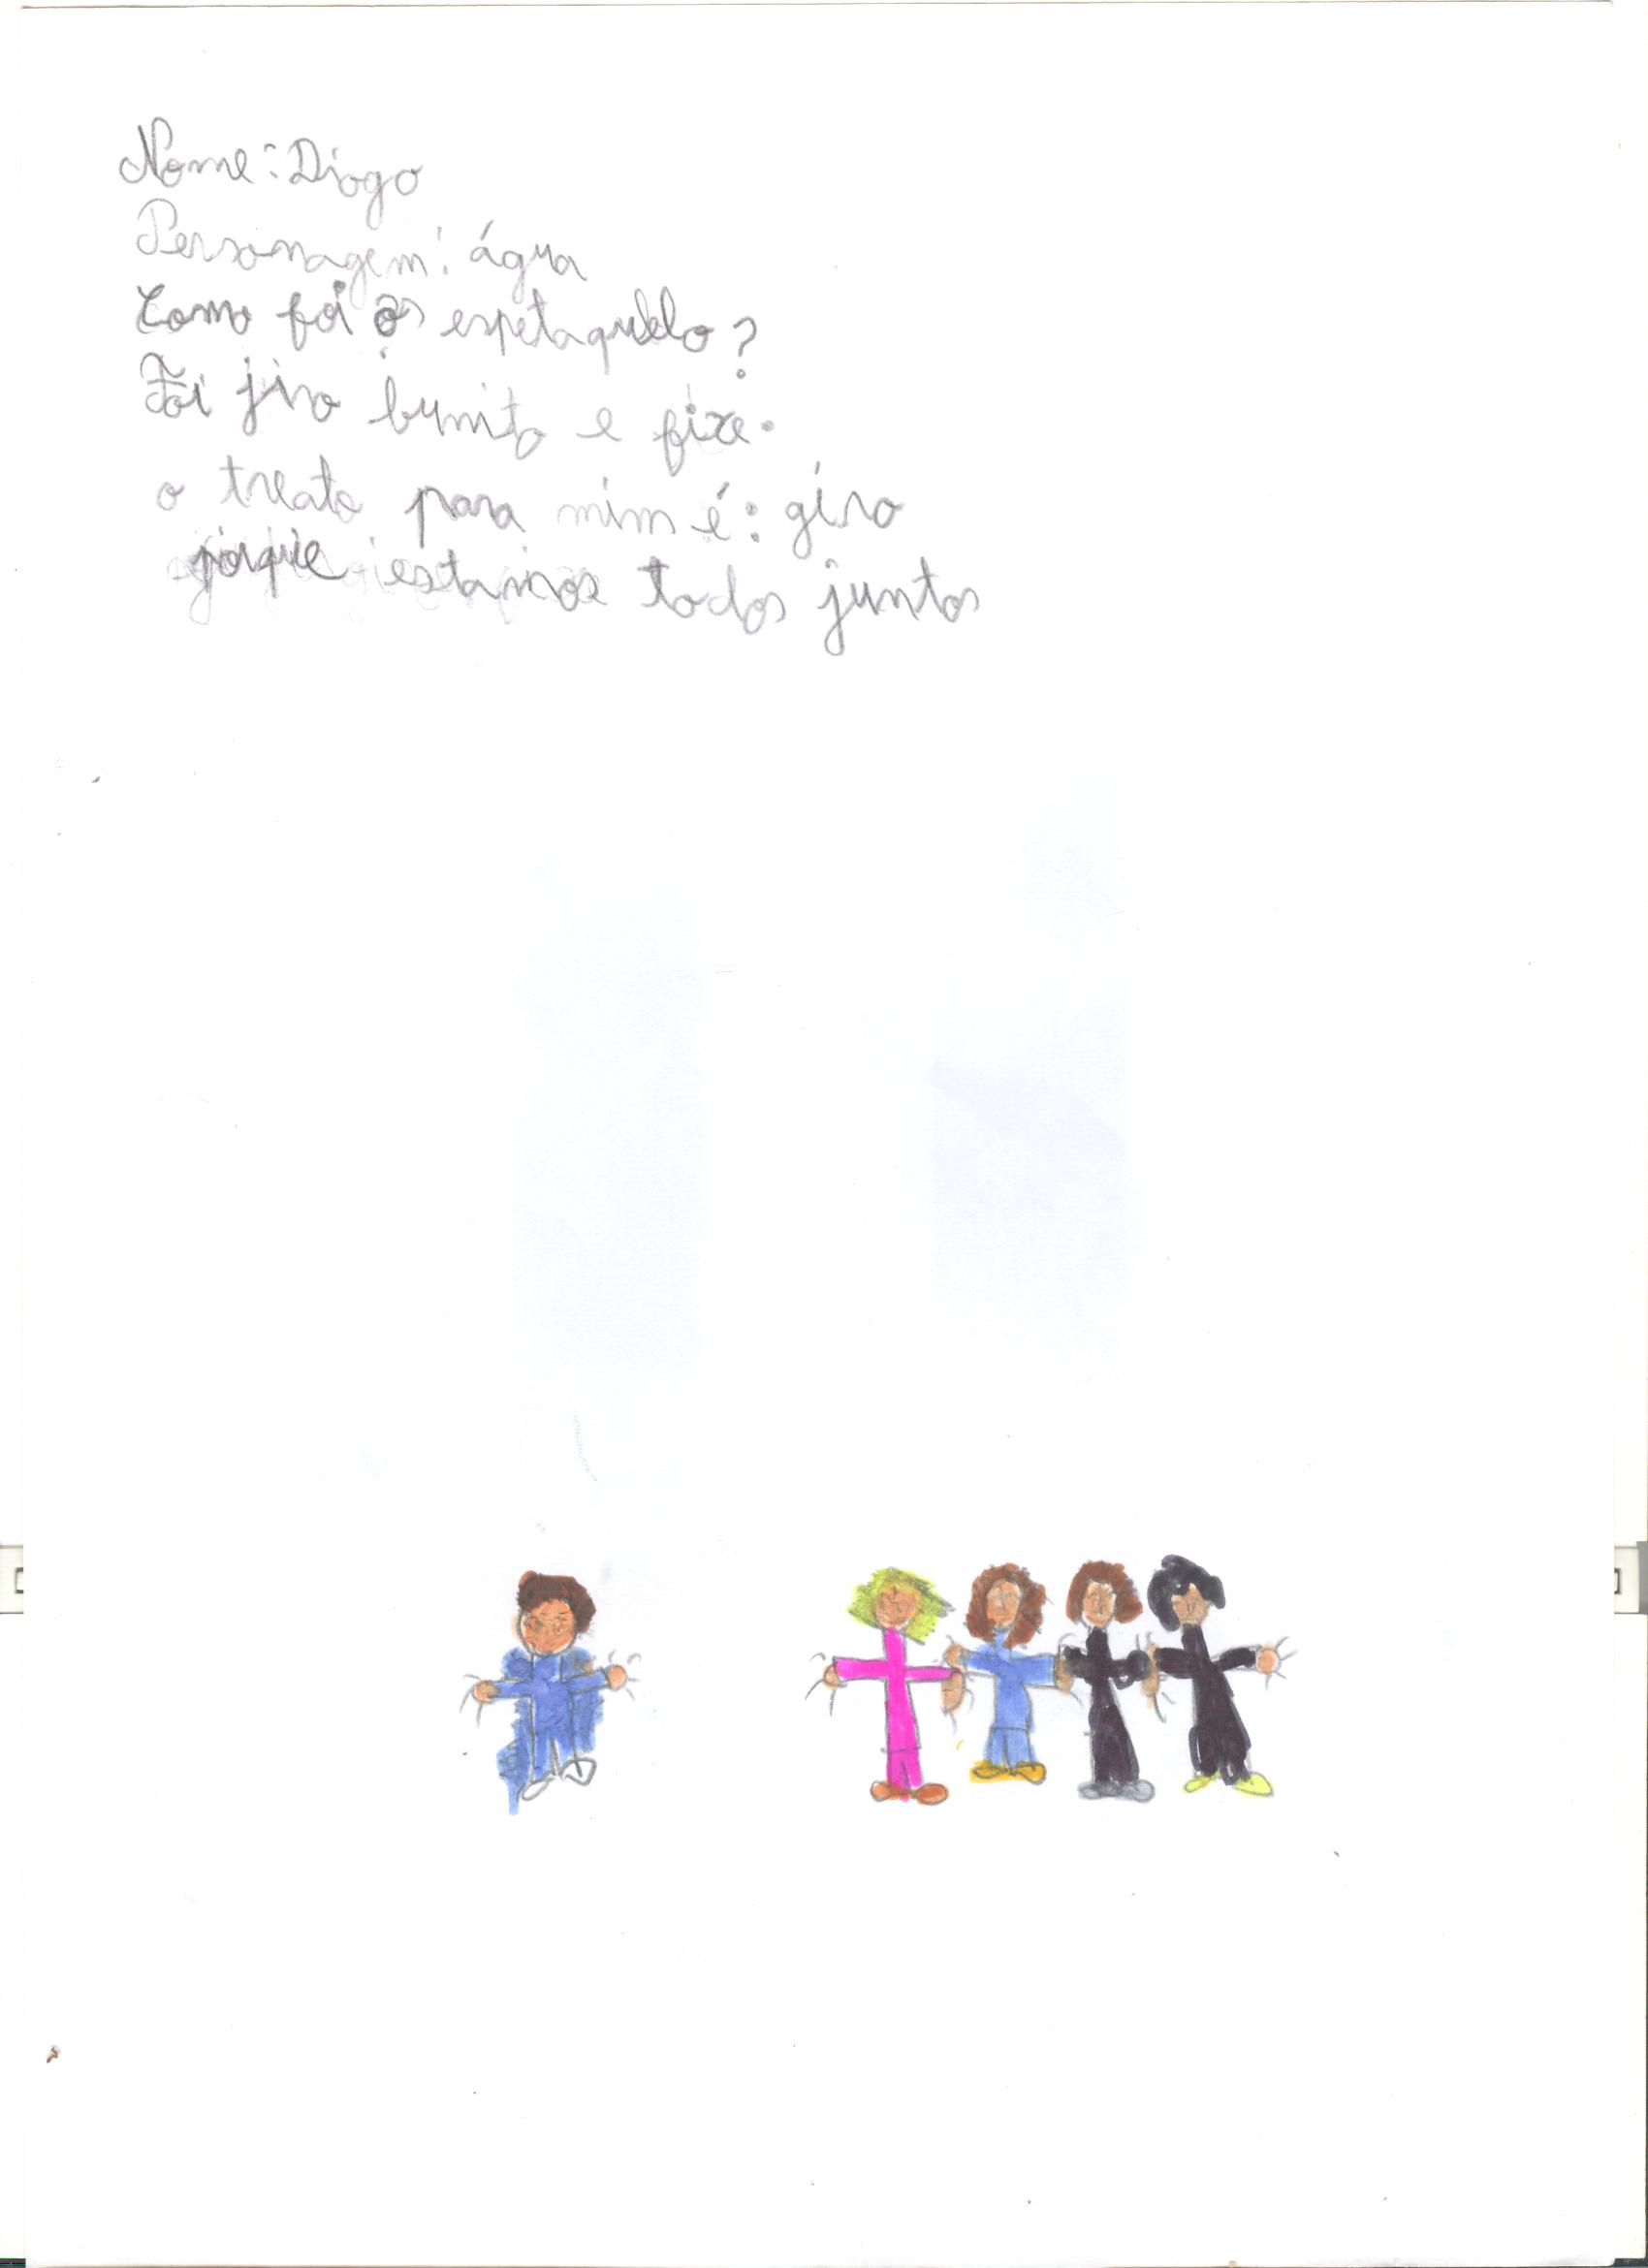 Nome: Diogo
Personagem: água
Como foi os espetaquelo?
Foi jiro bunito e fixe.
o treato para mim é: giro
porque estamos todos juntos